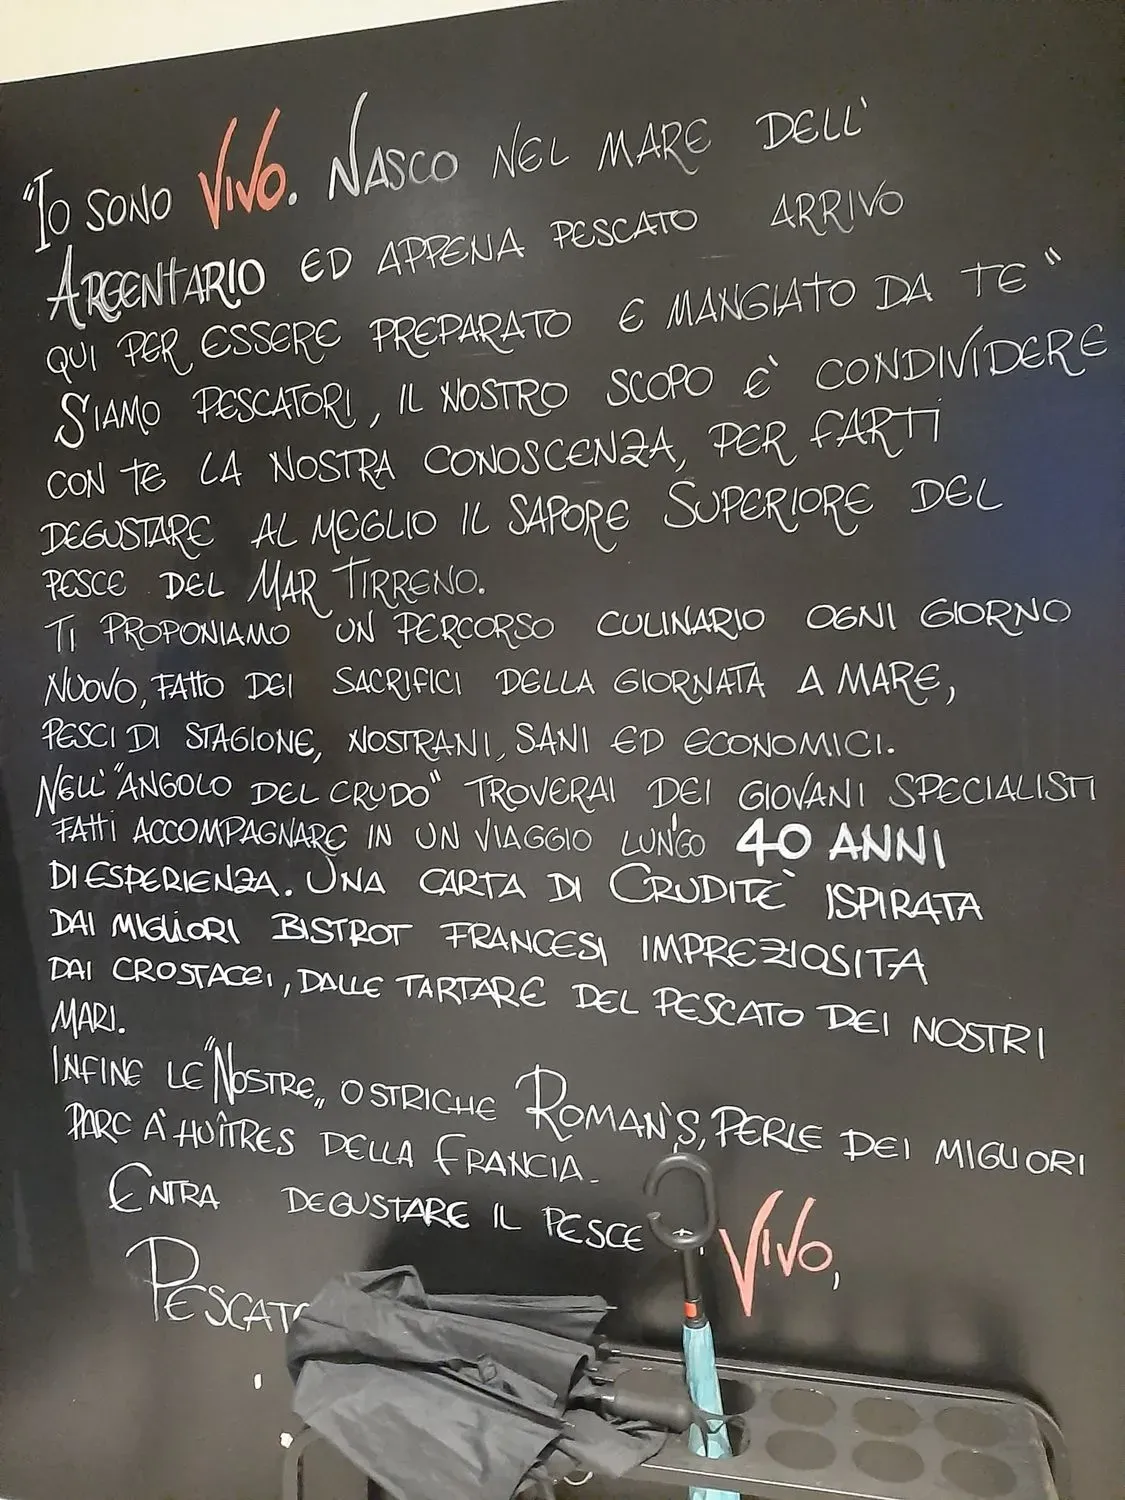 "IO SONO VIVO. NASCO NEL MARE DELL'
ARGENTARIO ED APPENA PESCATO ARRIVO
QUI PER ESSERE PREPARATO E MANGIATO DA TE"
SIAMO PESCATORI, IL NOSTRO SCOPO E' CONDIVIDERE
CON TE LA NOSTRA CONOSCENZA, PER FARTI
DEGUSTARE AL MEGLIO IL SAPORE SUPERIORE DEL
PESCE DEL MAR TIRRENO.
TI PROPONIAMO UN PERCORSO CULINARIO OGNI GIORNO
NUOVO, FATTO DEI SACRIFICI DELLA GIORNATA A MARE,
PESCI DI STAGIONE, NOSTRANI, SANI ED ECONOMICI.
NELL'"ANGOLO DEL CRUDO" TROVERAI DEI GIOVANI SPECIALISTI
FATTI ACCOMPAGNARE IN UN VIAGGIO LUNGO 40 ANNI
DI ESPERIENZA. UNA CARTA DI CRUDITE' ISPIRATA
DAI MIGLIORI BISTROT FRANCESI IMPREZIOSITA
DAI CROSTACEI, DALLE TARTARE DEL PESCATO DEI NOSTRI
MARI.
INFINE LE "NOSTRE,, OSTRICHE ROMAN'S, PERLE DEI MIGLIORI
PARC À HUÎTRES DELLA FRANCIA.
ENTRA DEGUSTARE IL PESCE VIVO,